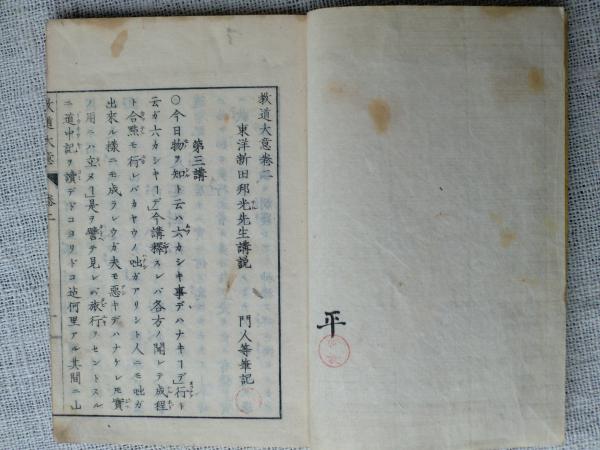 平
教道大意卷二
東洋新田邦光先生講説 門人等筆記
第三講
〇今日物ヲ知ト云ハ六カシキ事デハナキ一デ行ト
云ガ六カシキ一デ今講釋スレバ各方ノ聞レテ成程
ト合點モ行レバカヤウノ咄ガアリシト人ニモ咄ガ
出來ル樣ニモ成ラレウガ夫モ惡キデハナケレモ實
ノ用ニハ立ヌ一是ヲ譬テ見レバ旅行ヲセントスル
ニ道中記ヲ讀デドコヨリドコ迄何里アル其間ニ山
教道大意 卷二